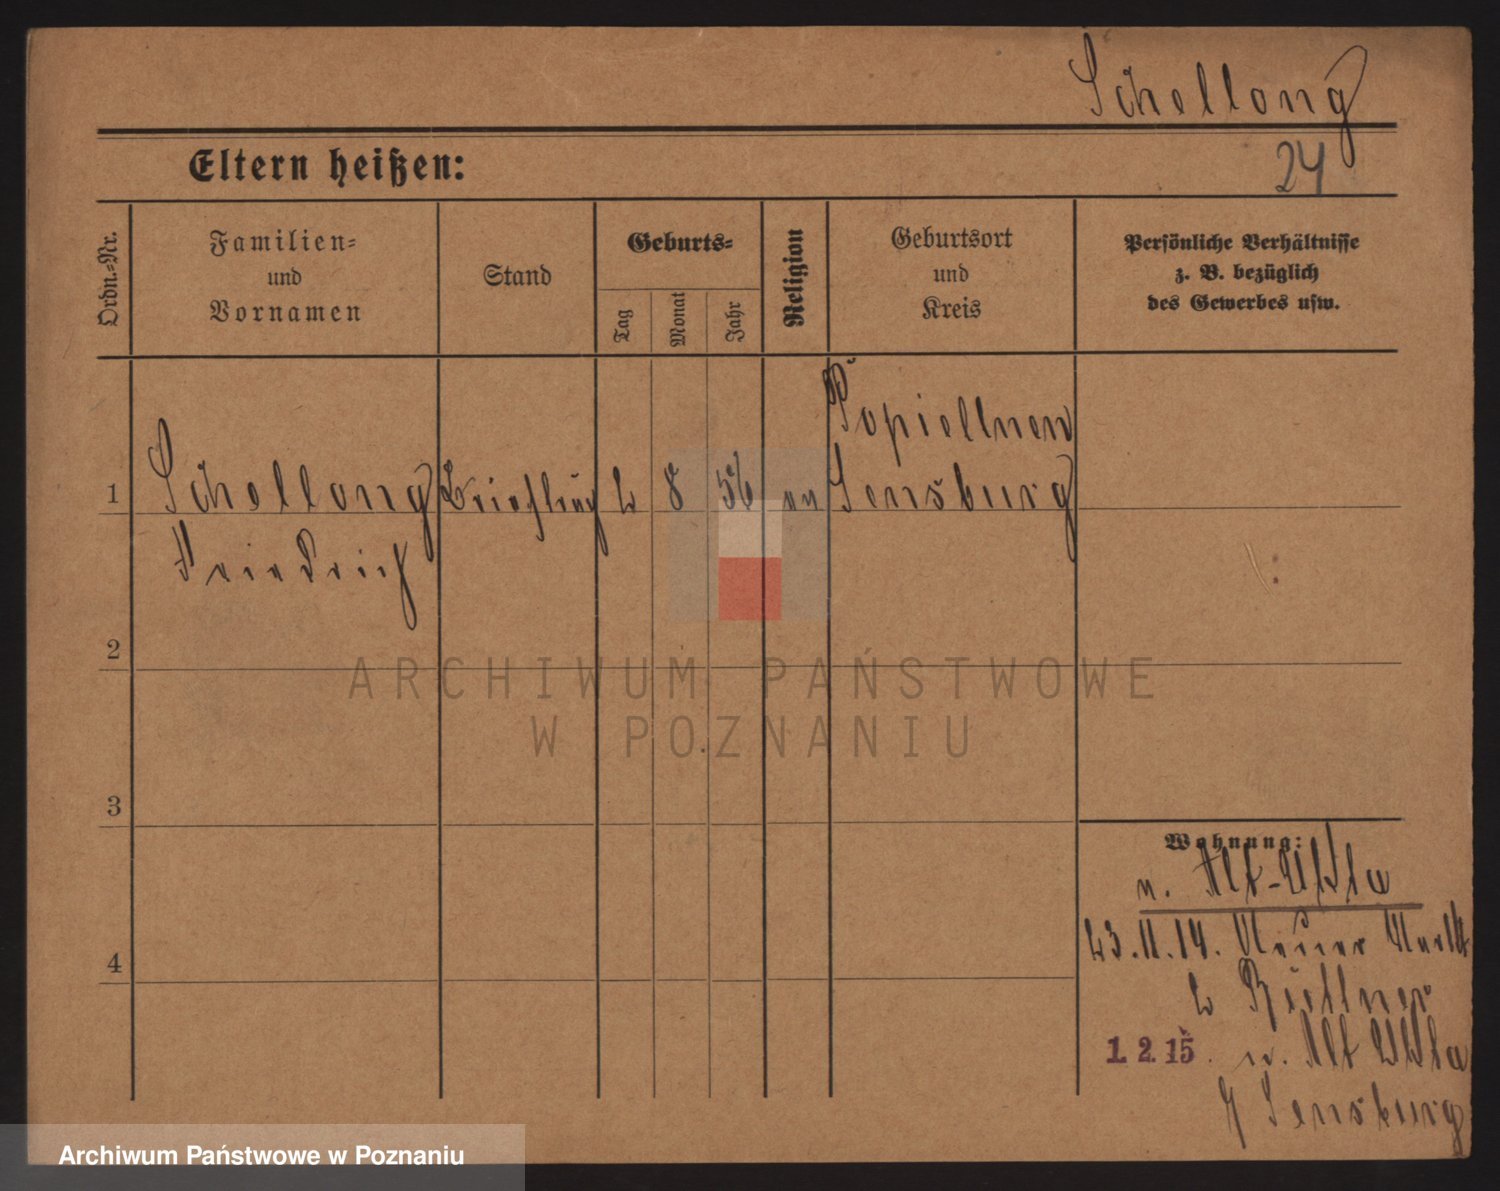 Schellong
24
Eltern heißen:
Ordn.-Nr.
Familien-
und
Vornamen
Stand
Geburts-
Tag
Monat
Jahr
Religion
Geburtsort
und
Kreis
Persönliche Verhältnisse
z. B. bezüglich
des Gewerbes usw.
Popiellnen
1 Schellong 2 8 56 ev Sensburg
Friedrich
2
3
4
ARCHIWUM PAŃSTWOWE
W POZNANIU
Wohnung:
n. Alt-Ukta
23.11.14. Neuer Markt
2 Büttner
1. 2. 15. n. Alt Ukta
Sensburg
Archiwum Państwowe w Poznaniu